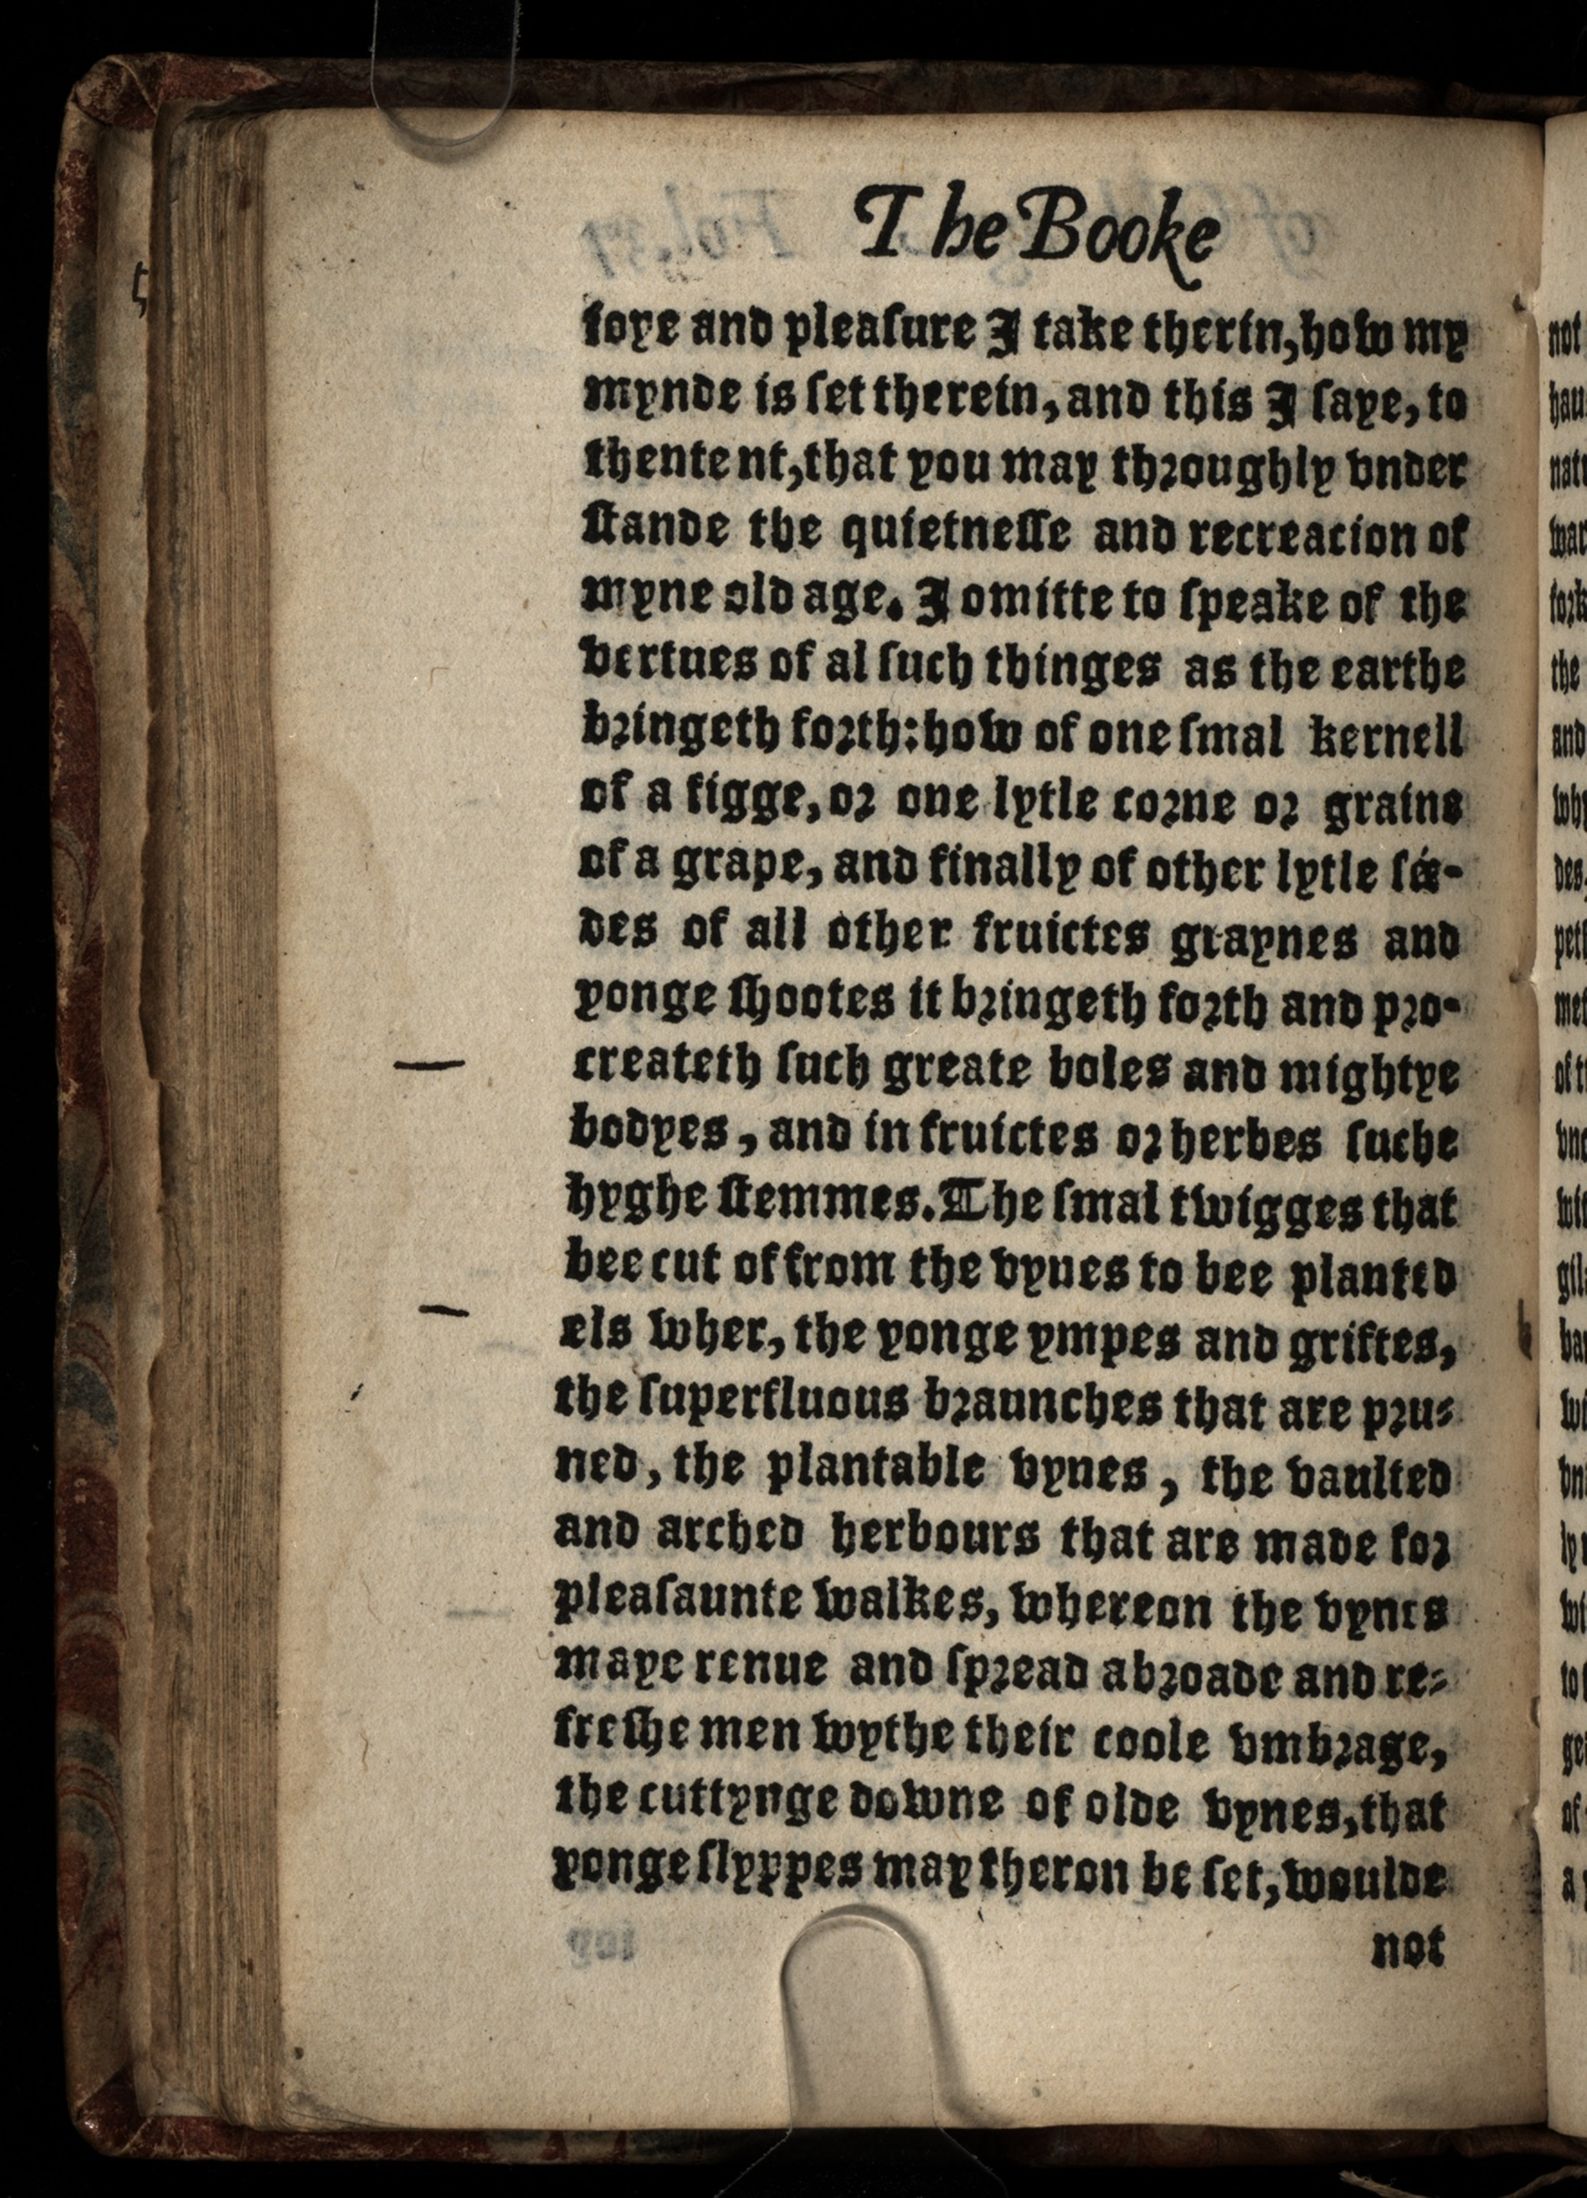 The Booke
ioye and pleaſure I take therin, how my
mynde is ſet therein, and this I ſaye, to
thentent, that you may throughly vnder
ſtande the quietneſſe and recreacion of
myne old age. I omitte to ſpeake of the
vertues of al ſuch thinges as the earthe
bringeth forth: how of one ſmal kernell
of a figge, or one lytle corne or graine
of a grape, and finally of other lytle ſée-
des of all other fruictes graynes and
yonge ſhootes it bringeth forth and pro-
createth ſuch greate boles and mightye
bodyes, and in fruictes or herbes ſuche
hyghe ſtemmes. The ſmal twigges that
bee cut of from the vynes to bee planted
els wher, the yonge ympes and griftes,
the ſuperfluous braunches that are pru-
ned, the plantable vynes, the vaulted
and arched herbours that are made for
pleaſaunte walkes, whereon the vynes
maye renue and ſpread abroade and re-
freſhe men wythe their coole vmbrage,
the cuttynge downe of olde vynes, that
yonge ſlyppes may theron be ſet, woulde
not
not
hau
nat
war
the
and
wh
des